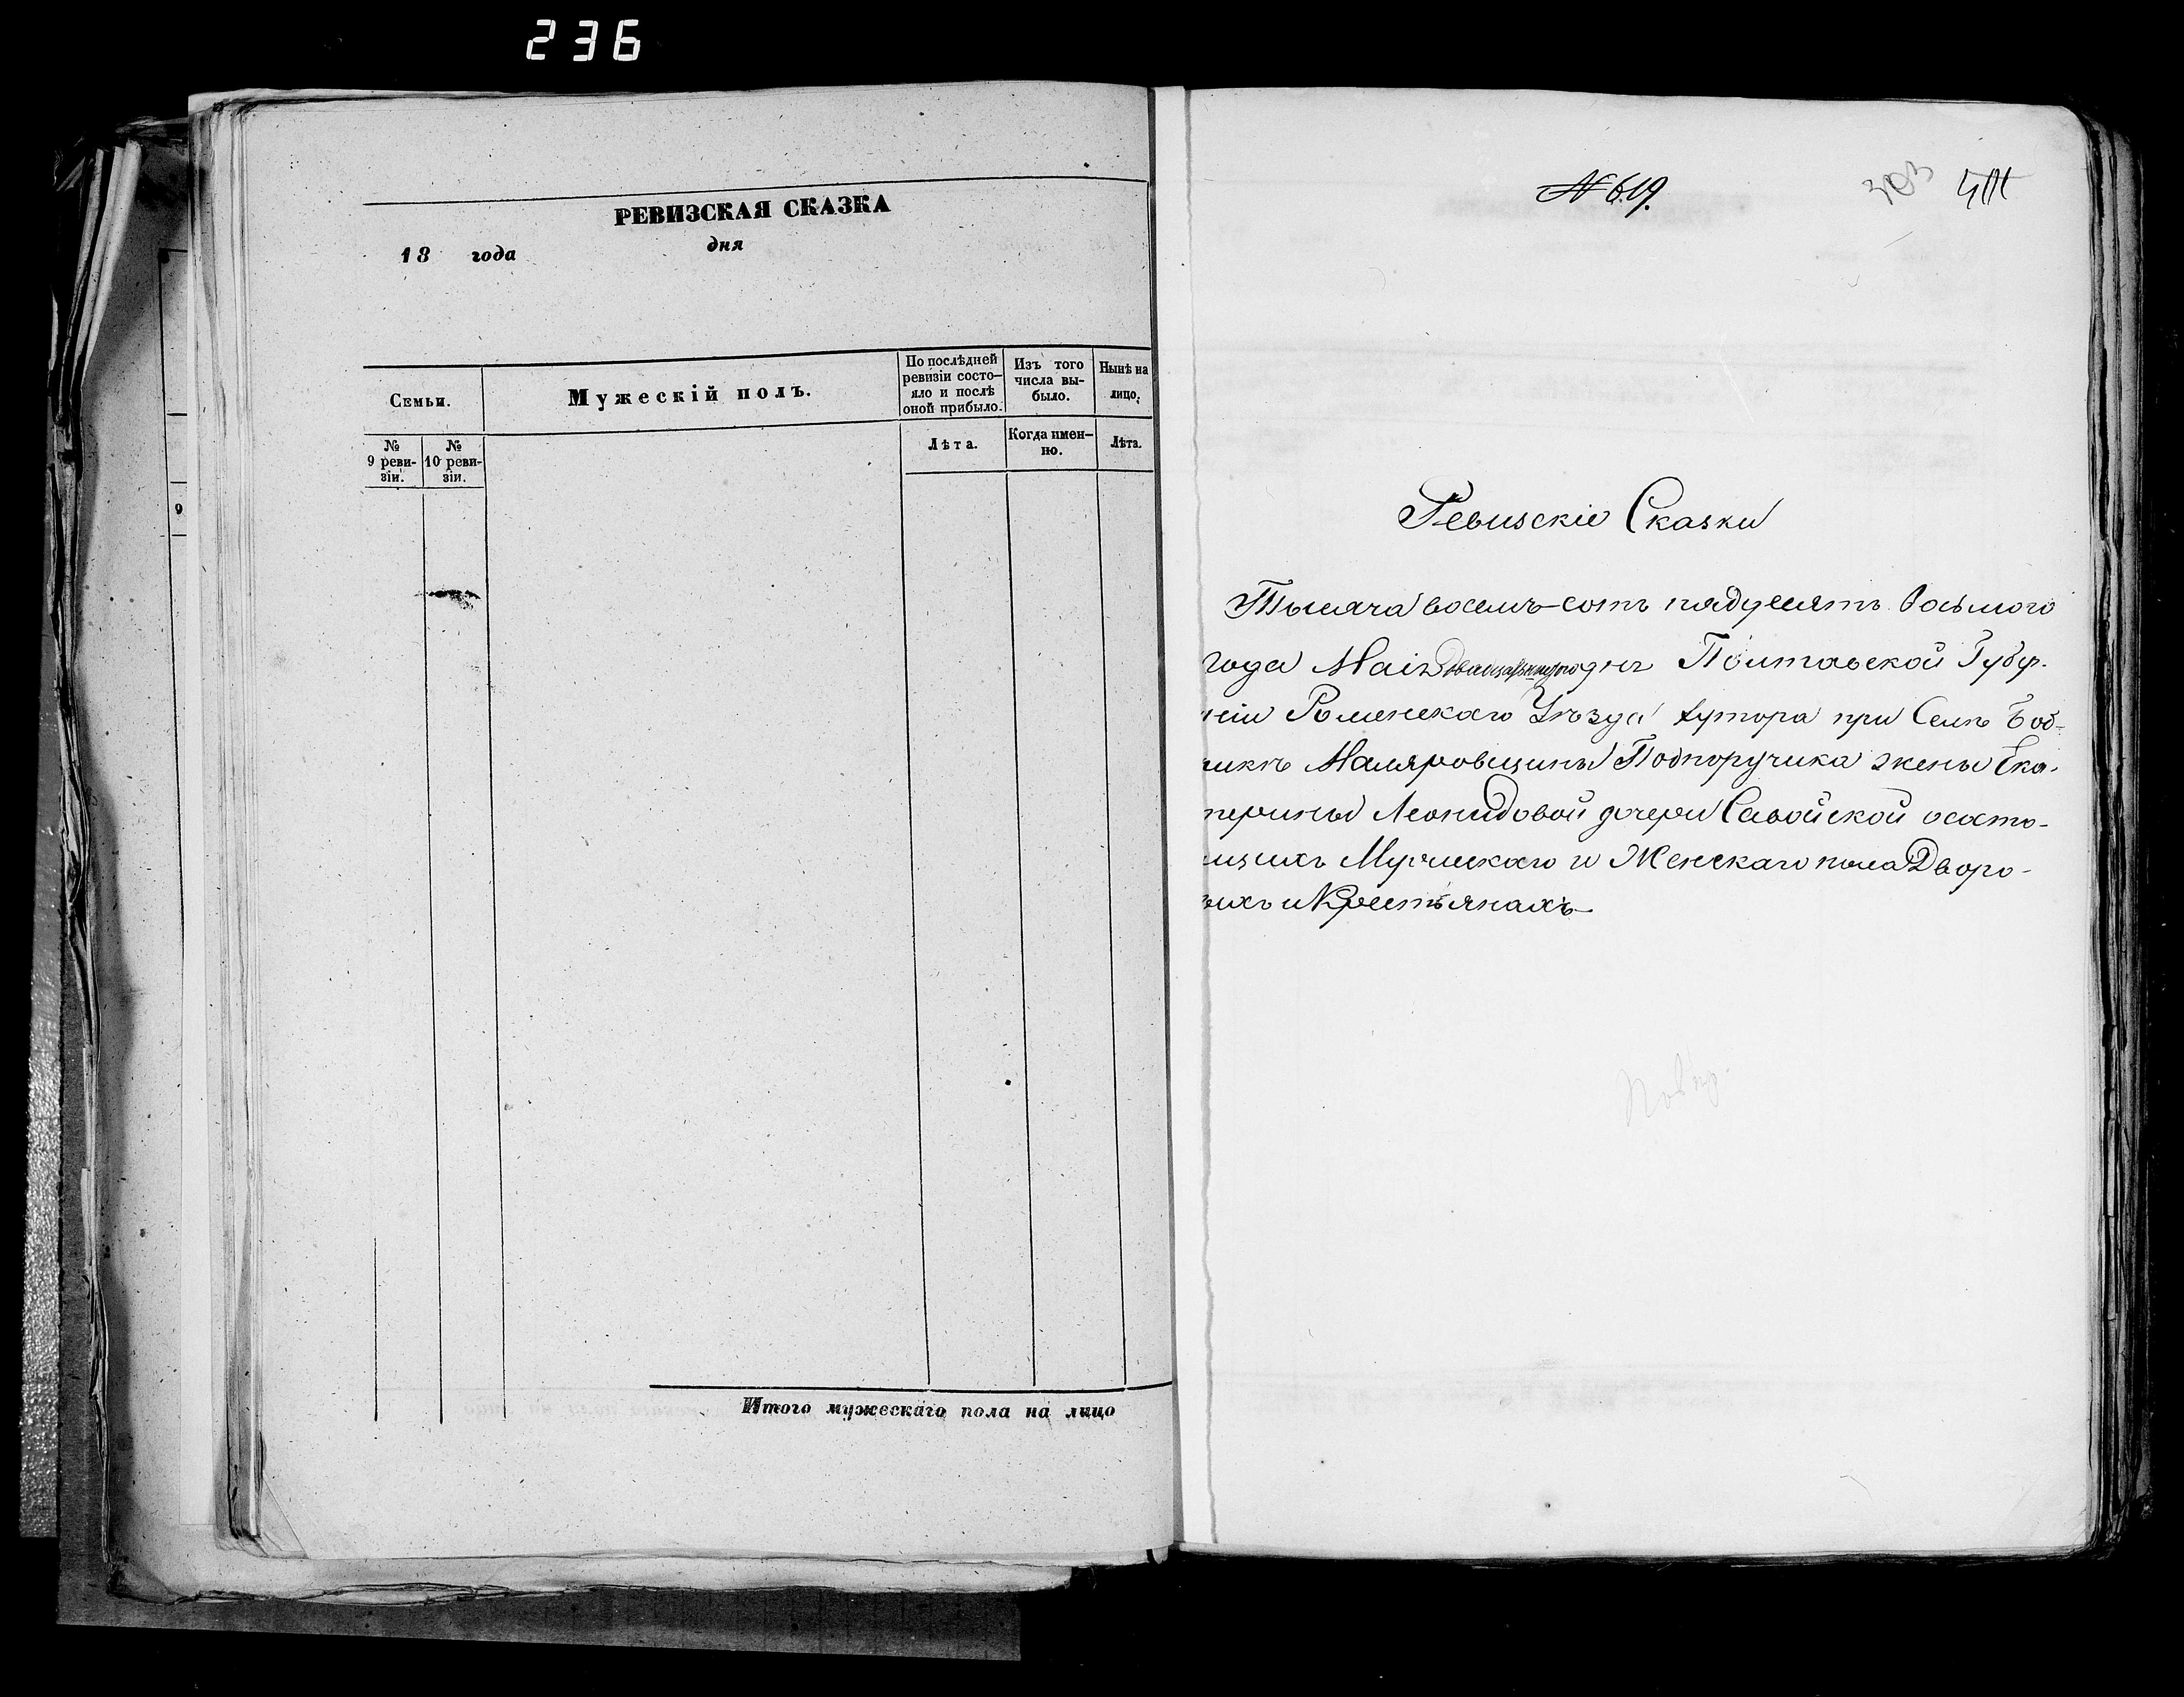 236
РЕВИЗСКАЯ СКАЗКА
18 года дня
Семьи.
Мужескій полъ.
По послѣдней ревизіи состо-
яло и послѣ оной прибыло.
Изъ того числа вы-
было.
Нынѣ на лицо.
№ 9 реви-
зіи.
№ 10 реви-
зіи.
Лѣта.
Когда имен-
но.
Лѣта.
Итого мужескаго пола на лицо
9
№ 619.
303
Ревизскіе Сказки
Тысяча восемь-сотъ пядесятъ восьмого
года Маія дня Полтавской Губер-
ніи Роменскаго Уѣзда хутора при Селѣ Боб-
рикѣ Маляровщины Подпоручика жены Ека-
терины Леонидовой дочери Савойской ососто-
ящихъ Мужескаго и Женскаго пола Дворо-
выхъ и Крестьянахъ